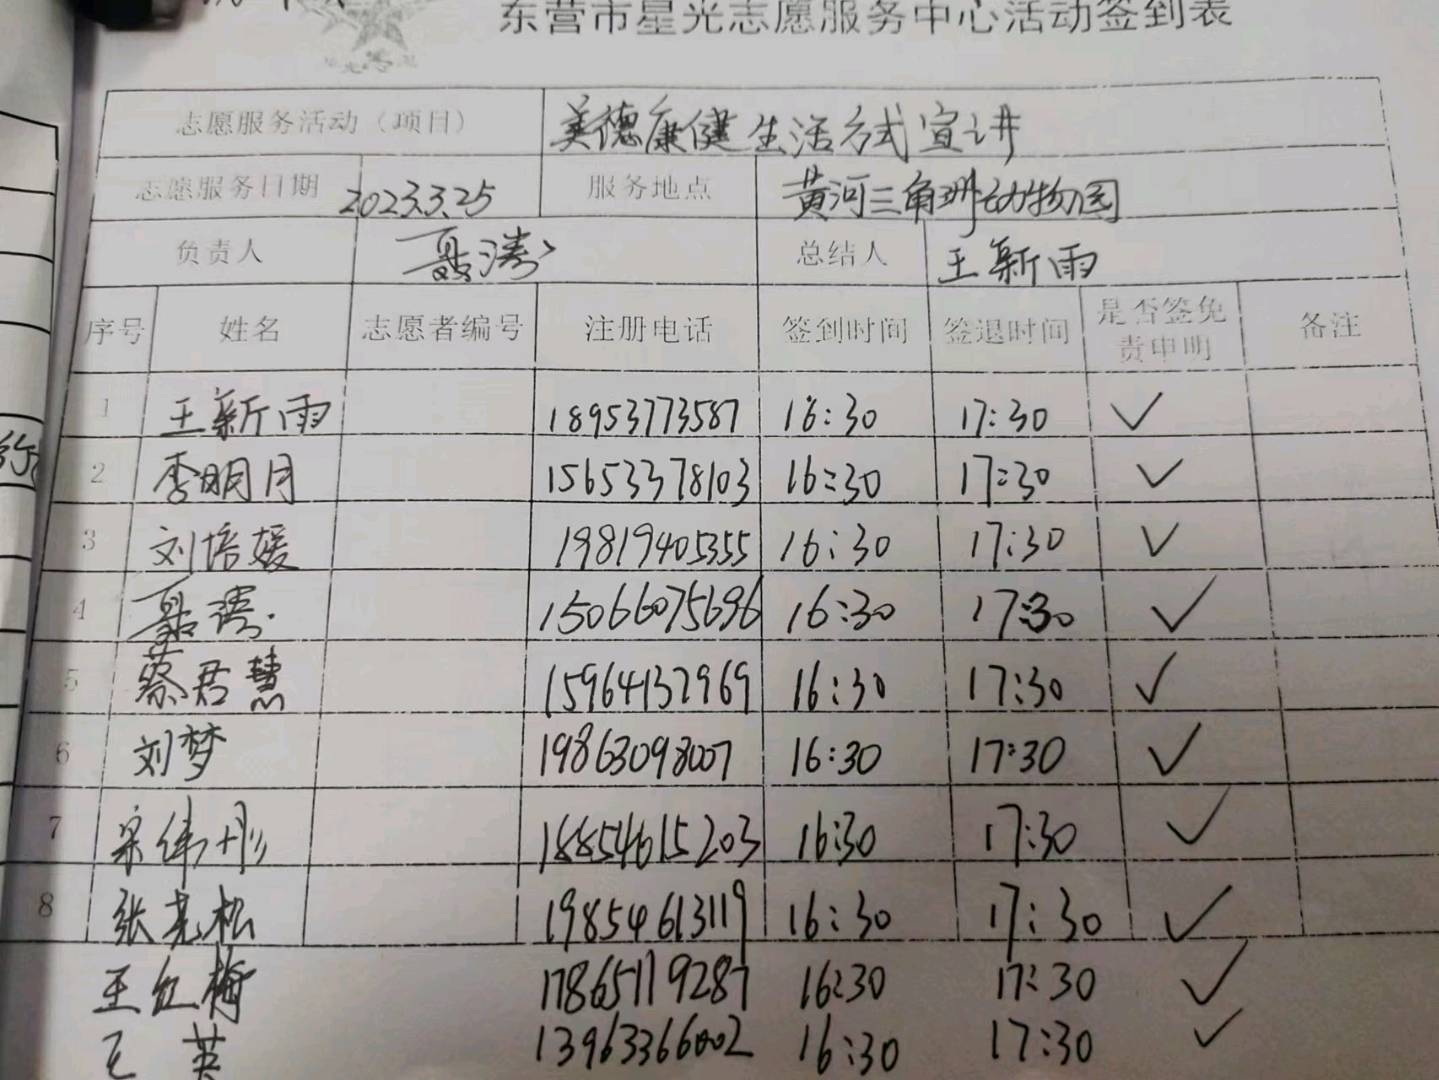 东营市星光志愿服务中心活动签到表
志愿服务活动（项目） 美德康健生活方式宣讲
志愿服务日期 2023.3.25 服务地点 黄河三角洲动物园
负责人 聂涛 总结人 王新雨
序号 姓名 志愿者编号 注册电话 签到时间 签退时间 是否签免责申明 备注
1 王新雨 18953773587 16:30 17:30 ✓
2 李明月 15653378103 16:30 17:30 ✓
3 刘培媛 19819405355 16:30 17:30 ✓
4 聂涛 15066075696 16:30 17:30 ✓
5 蔡君慧 15964132969 16:30 17:30 ✓
6 刘梦 19863098007 16:30 17:30 ✓
7 宋伟彤 18854615203 16:30 17:30 ✓
8 张亮松 19854613119 16:30 17:30 ✓
王红梅 17865119287 16:30 17:30 ✓
王英 13963366002 16:30 17:30 ✓